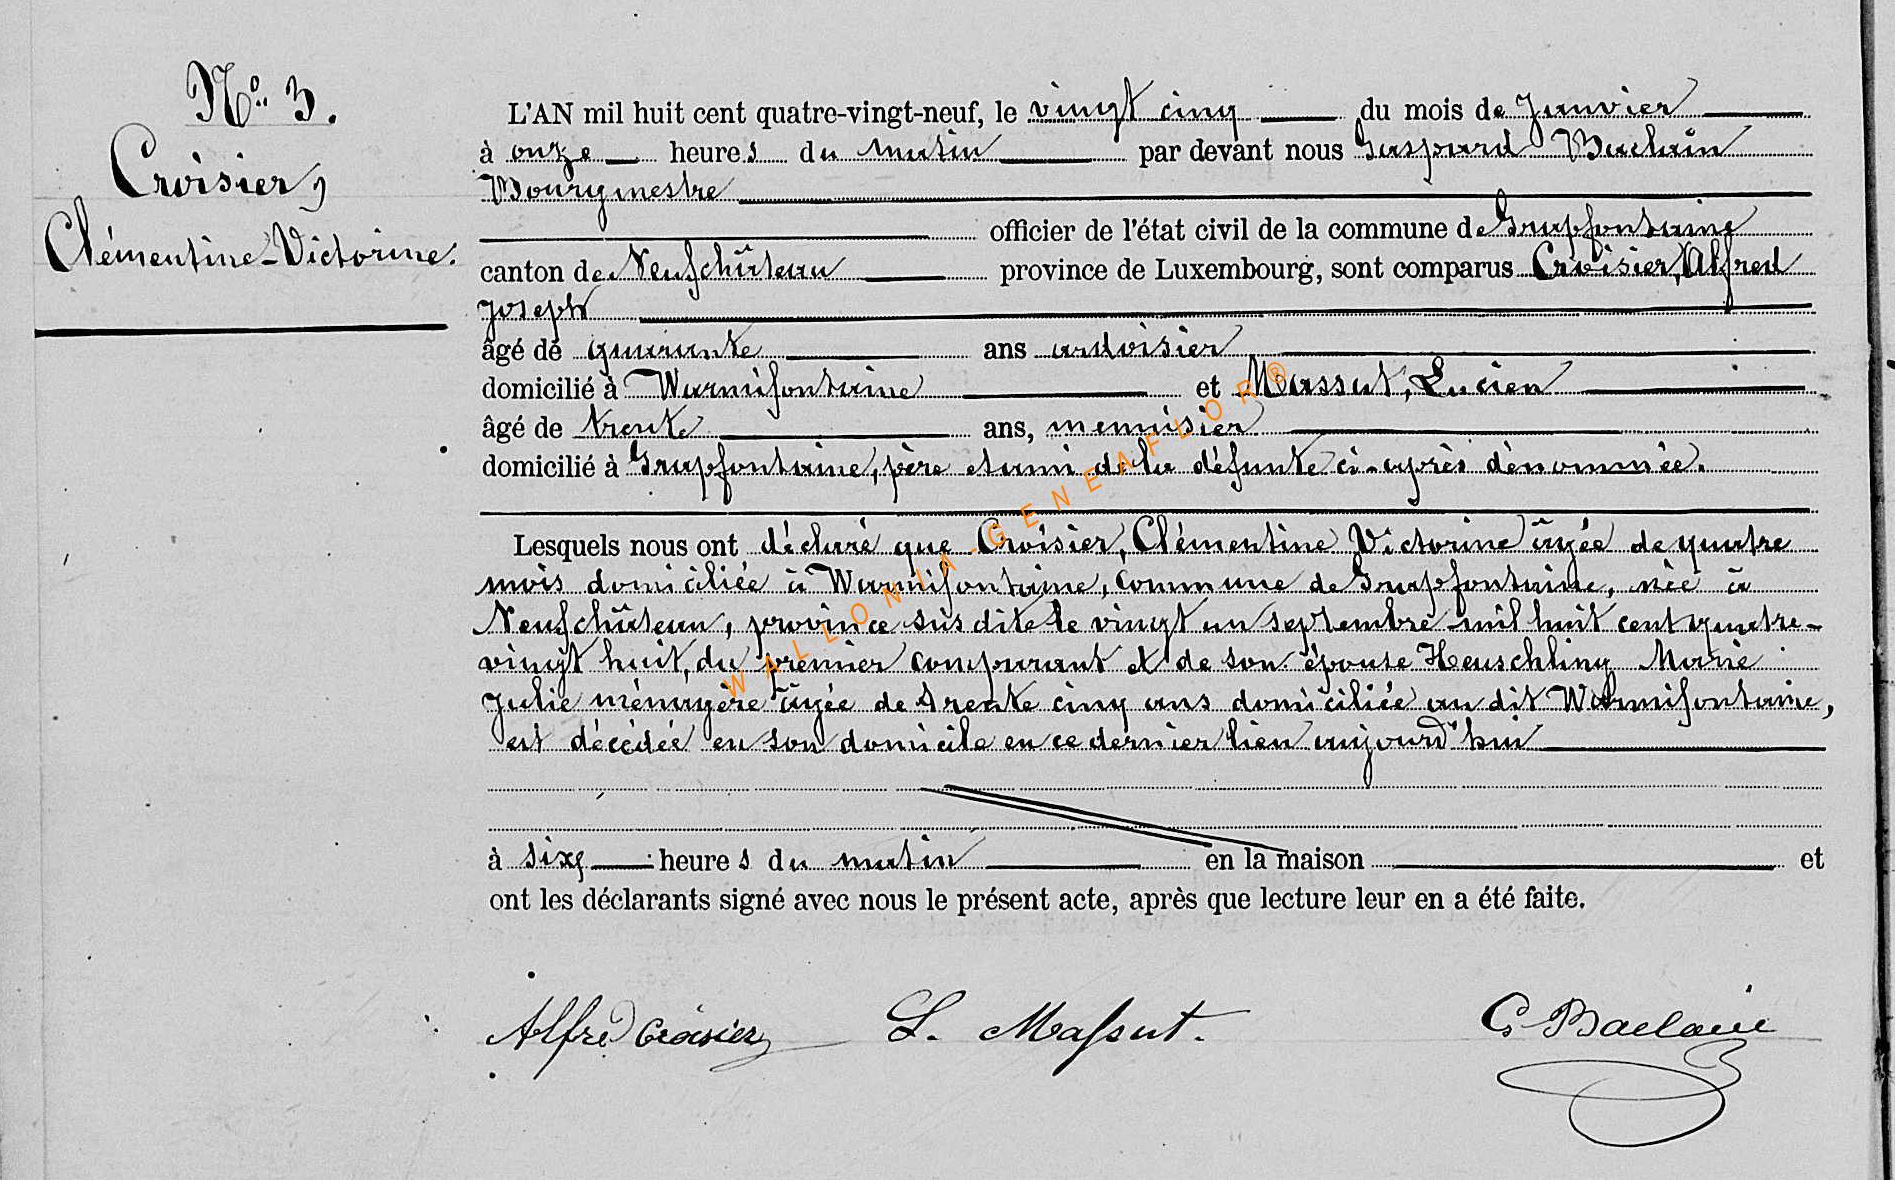 N° 3.
Croisier,
Clémentine-Victorine.
L'AN mil huit cent quatre-vingt-neuf, le vingt cinq du mois de Janvier
à onze heures du matin par devant nous Gaspard Baclain
Bourgmestre
officier de l'état civil de la commune de Grapfontaine
canton de Neufchâteau province de Luxembourg, sont comparus Croisier, Alfred
Joseph
âgé de quarante ans ardoisier
domicilié à Warmifontaine et Massut, Lucien
âgé de trente ans, menuisier
domicilié à Grapfontaine, père et ami de la défunte ci-après dénommée.
Lesquels nous ont déclaré que Croisier, Clémentine Victorine âgée de quatre
mois domiciliée à Warmifontaine, commune de Grapfontaine, née à
Neufchâteau, province susdite le vingt un septembre mil huit cent quatre-
vingt huit, du premier comparant et de son épouse Heuschling Marie
Julie ménagère âgée de trente cinq ans domiciliée au dit Warmifontaine,
est décédée en son domicile en ce dernier lieu aujourd'hui
à six heures du matin en la maison et
ont les déclarants signé avec nous le présent acte, après que lecture leur en a été faite.
Alfred Croisier L. Massut. G Baclain
WALLONIA-GENEAFLOR®